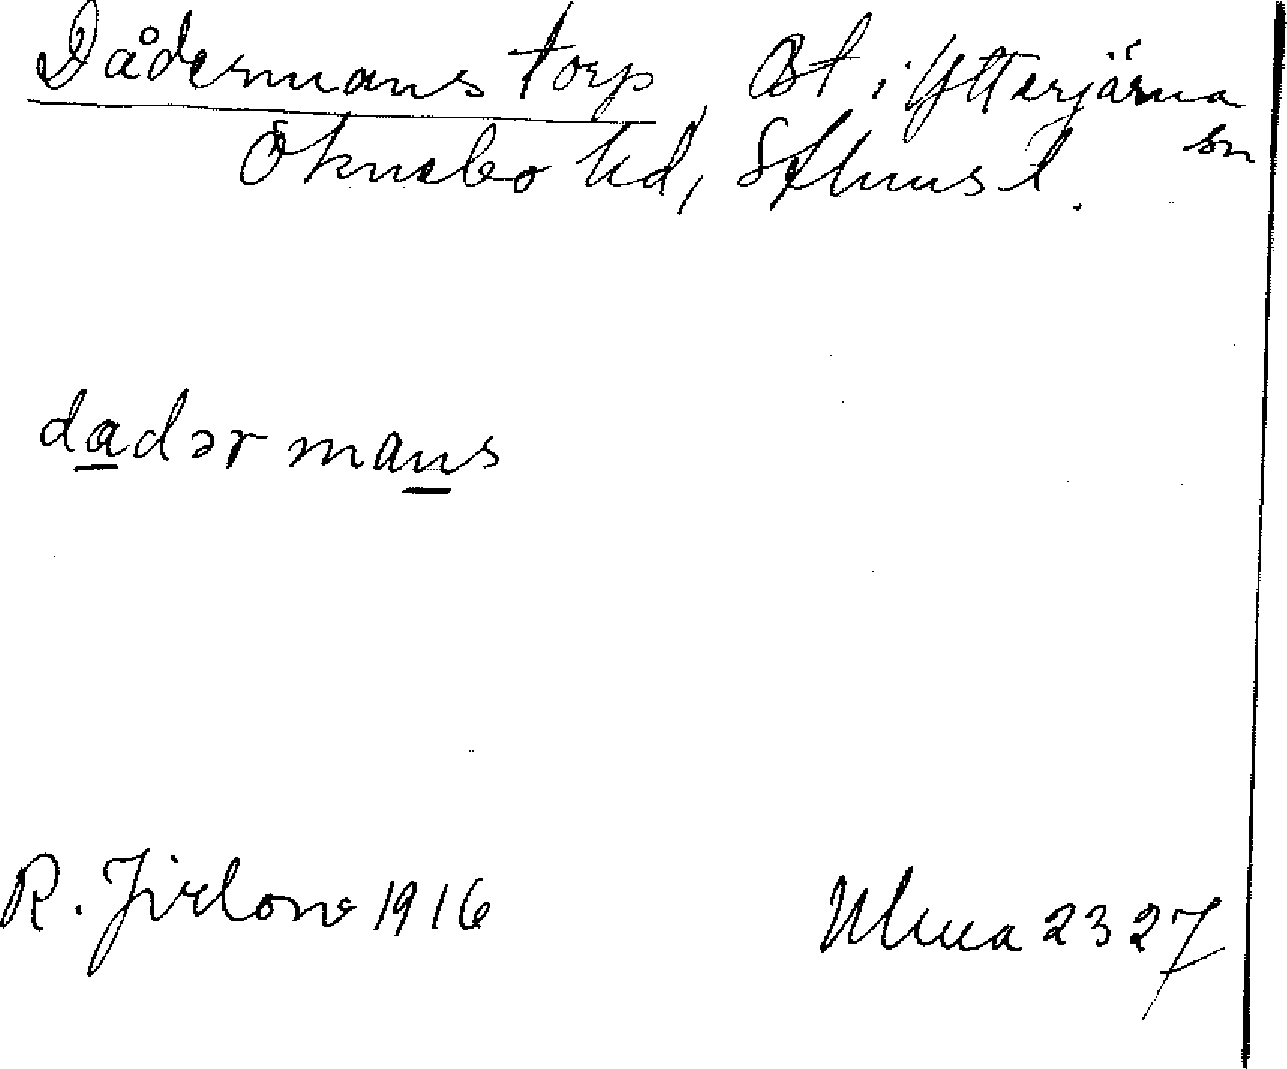 Dådermans torp, Bt i Ytterjärna sn
Öknebo hd, Sthms l.
dadər mans
R. Jirlow 1916
Ulma 2327